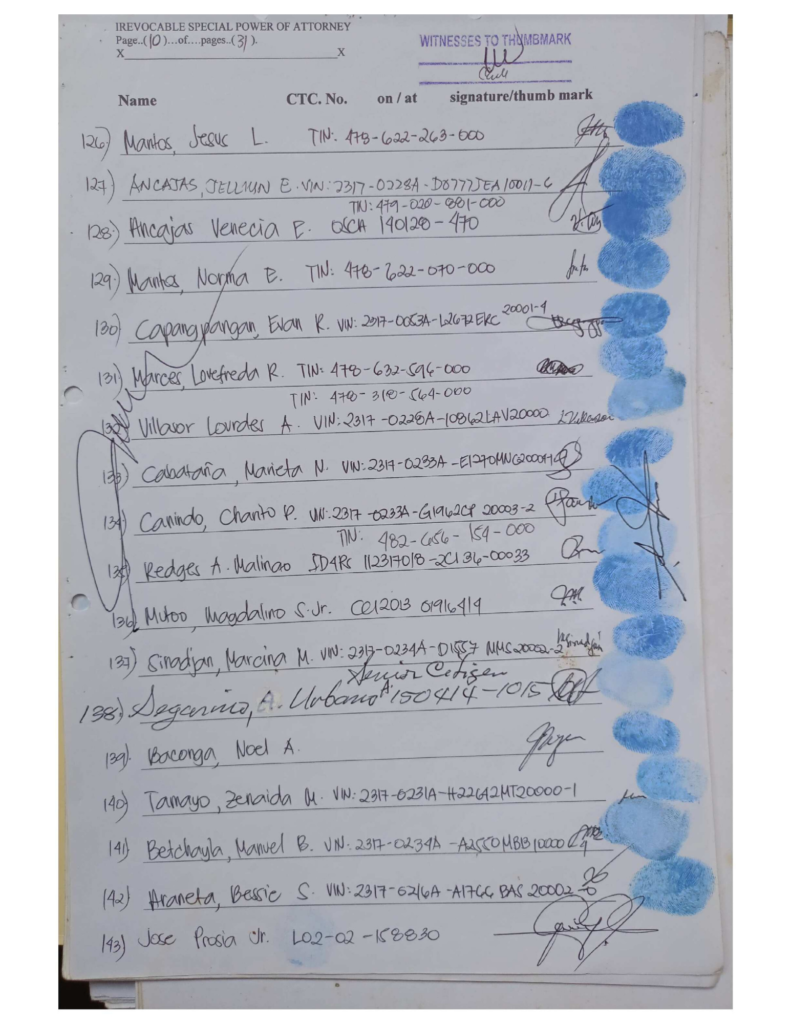 IREVOCABLE SPECIAL POWER OF ATTORNEY
Page..(10)...of....pages..(31).
X X
WITNESSES TO THUMBMARK
Name CTC. No. on / at signature/thumb mark
126) Mantos, Jesus L. TIN: 478-622-263-000
127) ANCAJAS, JELLIUN E. VIN: 2317-0228A-D0777JEA10011-6
TIN: 479-020-881-000
128) Ancajas Venecia E. OSCA 140128-470
129) Mantos, Norma E. TIN: 478-622-070-000
130) Capangpangan, Evan R. VIN: 2317-0053A-L2672EKC 20001-4
131) Marces, Lovefreda R. TIN: 478-632-596-000
TIN: 478-318-564-000
132) Villasor Lourdes A. VIN: 2317-0228A-10862LAV20000
133) Cabataña, Marieta N. VIN: 2317-0233A
134) Canindo, Charito P. VIN: 2317-0233A-G1962CP 20003-2
TIN: 482-656-154-000
135) Redges A. Malinao ID4Ps 112317018-2C136-00033
136) Mutoo, Magdalino S. Jr. CCI2013 01916414
137) Sinadjan, Marcina M. VIN: 2317-0234A-D1557 MMS20002-2
Senior Citizen
138) Segarino, A. Urbano A. 150414-1015
139) Baconga, Noel A.
140) Tamayo, Zenaida M. VIN: 2317-0231A-H22642MT20000-1
141) Betchayla, Manuel B. VIN: 2317-0234A-A2550MBB10000
142) Araneta, Bessie S. VIN: 2317-0216A-A1766 BAS 20002-0
143) Jose Prosia Jr. L02-02-158830